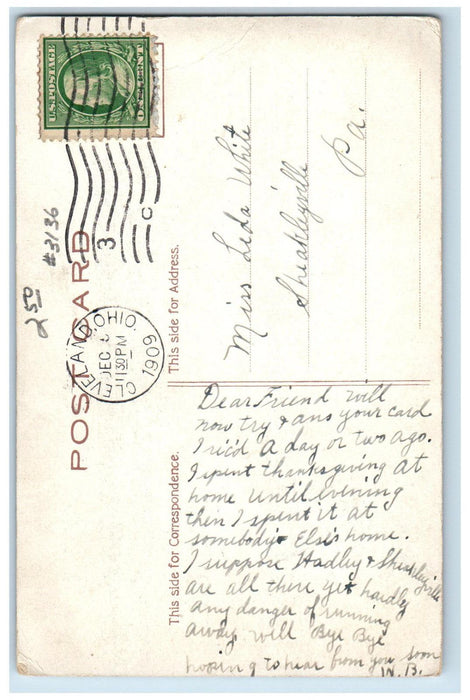 U.S. POSTAGE
ONE CENT
3
C
CLEVELAND, OHIO.
DEC
1909
#3136
2 50
POST CARD
This side for Address.
Miss Leda White
Sheakleyville
Pa.
This side for Correspondence.
Dear Friend will
now try & ans your card
I rec'd a day or two ago.
I spent thanksgiving at
home until evening
then I spent it at
somebody Else's home.
I suppose Hadley & Sheakleyville
are all there yet hardly
any danger of running
away. will Bye Bye
hoping to hear from you soon
W.B.